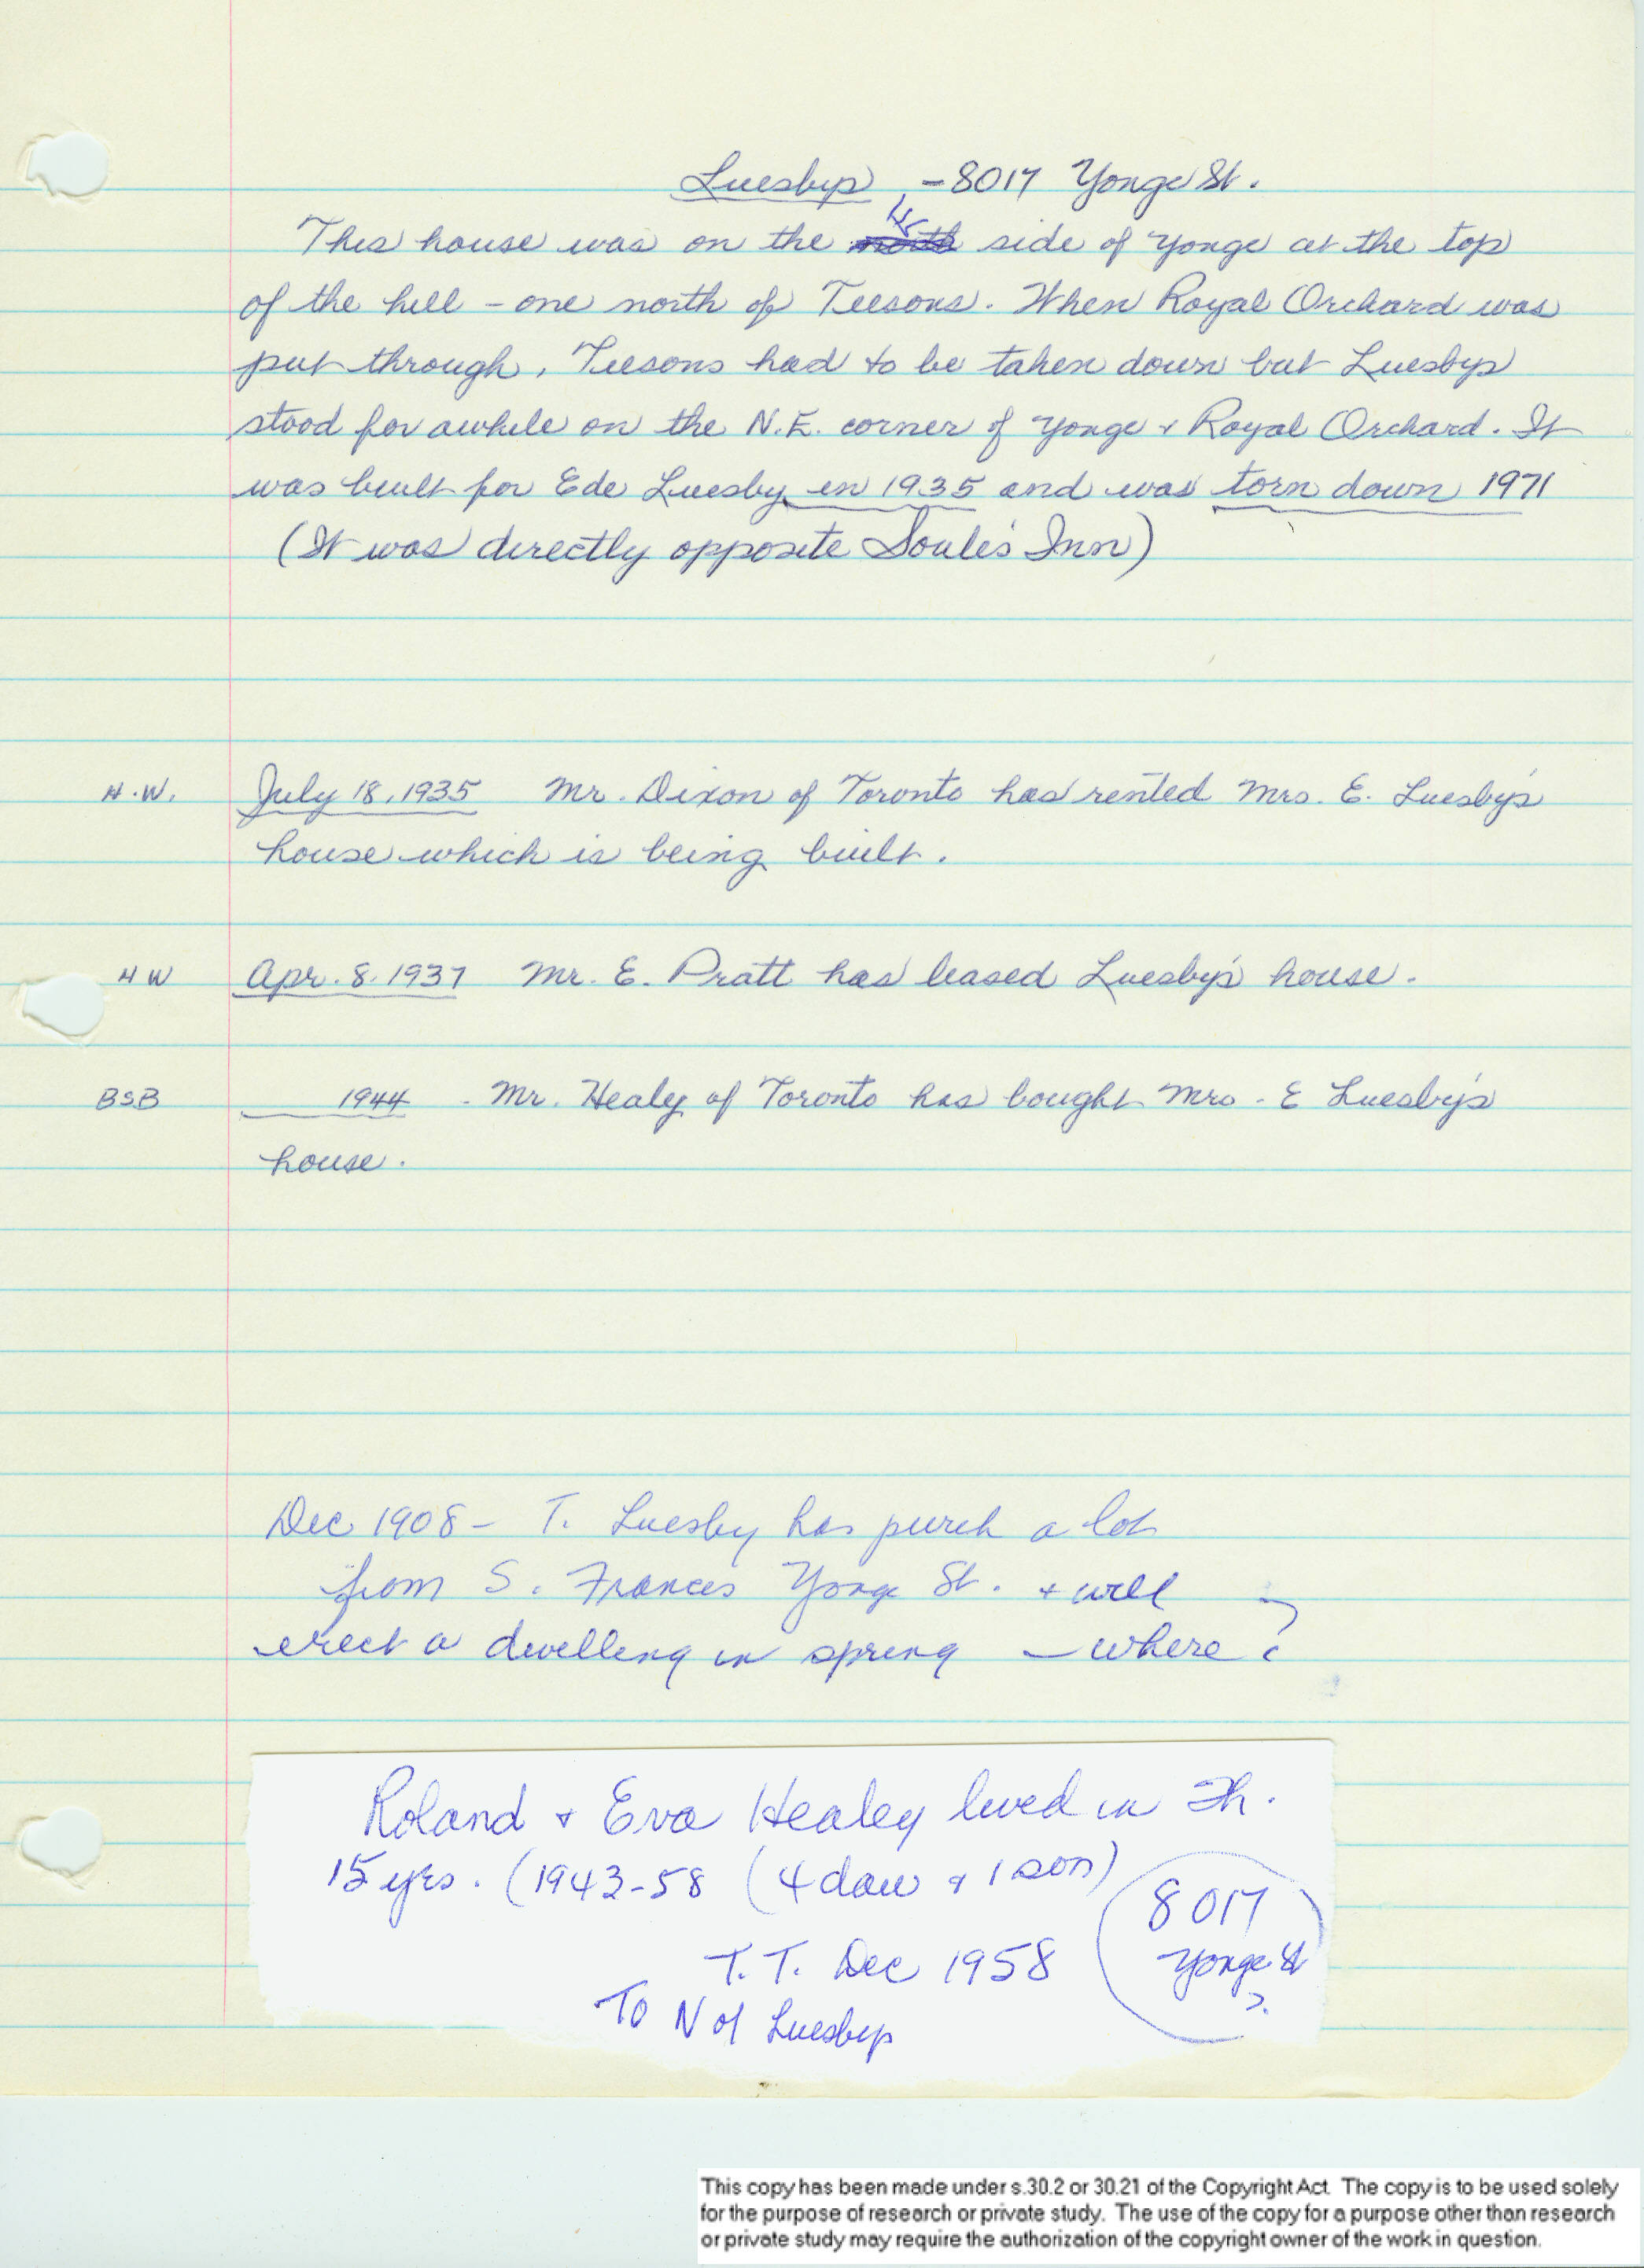 Luesby - 8017 Yonge St.
This house was on the side of Yonge at the top
of the hill - one north of Teesons. When Royal Orchard was
put through, Teesons had to be taken down but Luesbys
stood for awhile on the N.E. corner of Yonge + Royal Orchard. It
was built for Ede Luesby in 1935 and was torn down 1971
(It was directly opposite Soules Inn)
H.W. July 18, 1935 Mr. Dixon of Toronto has rented Mrs. E. Luesby's
house which is being built.
HW Apr. 8. 1937 Mr. E. Pratt has leased Luesby's house.
BSB 1944 - Mr. Healey of Toronto has bought Mrs. E Luesby's
house.
Dec 1908 - T. Luesby has purch a lot
from S. Frances Yonge St. + will
erect a dwelling in spring - where?
Roland + Eva Healey lived in Th.
15 yrs. (1943-58 (4 dau + 1 son)
8017
Yonge St
?
T.T. Dec 1958
To N of Luesby
This copy has been made under s.30.2 or 30.21 of the Copyright Act. The copy is to be used solely
for the purpose of research or private study. The use of the copy for a purpose other than research
or private study may require the authorization of the copyright owner of the work in question.